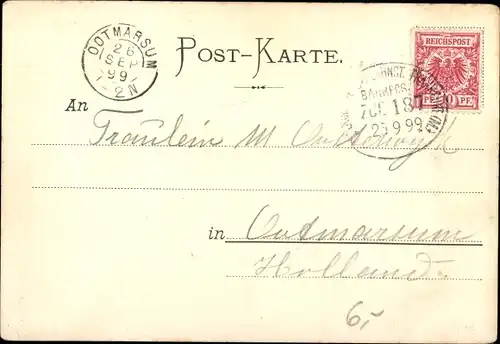 OOTMARSUM
26
SEP
99
2 N
POST-KARTE.
REICHSPOST
PF 10 PF
BAHNPOST
ZUG 187
25 9 99
An
Fräulein M
in Ootmarsum
Holland.
6,-